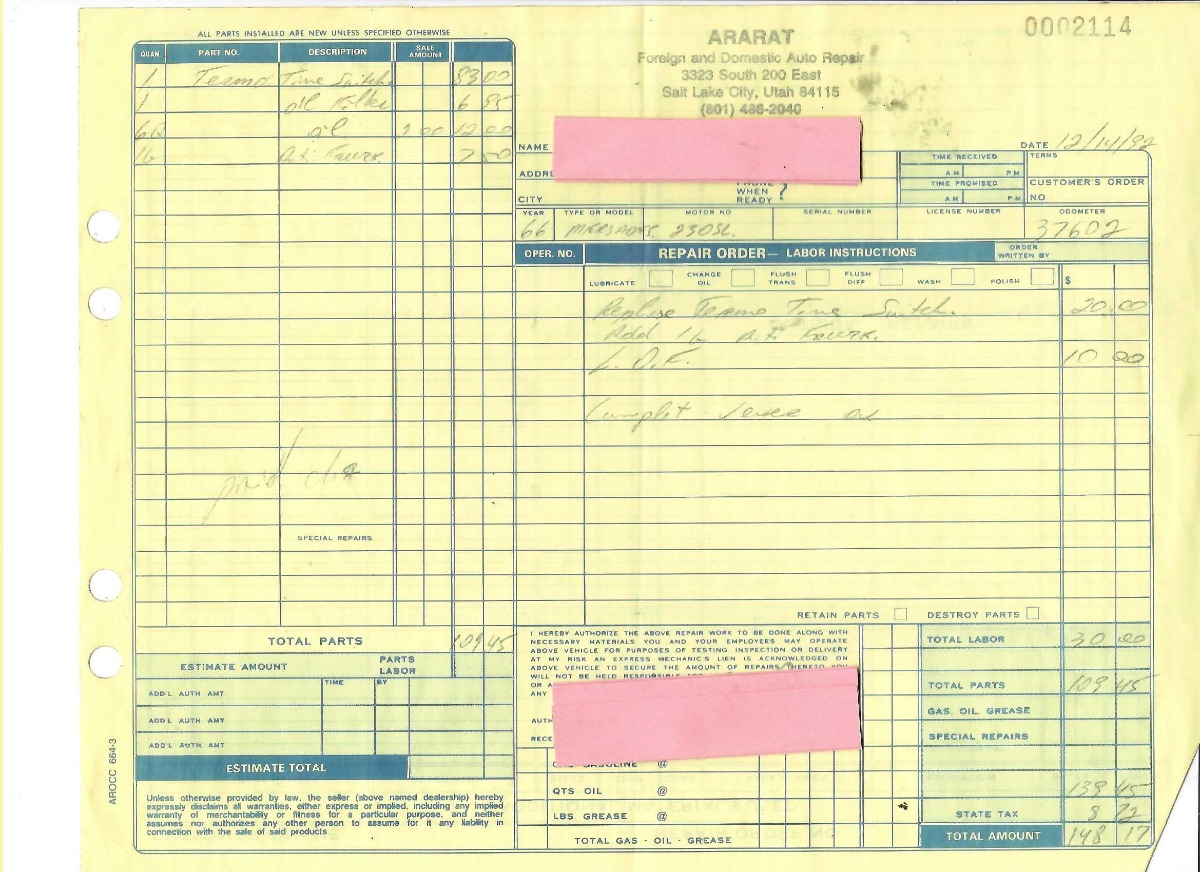 ALL PARTS INSTALLED ARE NEW UNLESS SPECIFIED OTHERWISE
0002114
ARARAT
Foreign and Domestic Auto Repair
3323 South 200 East
Salt Lake City, Utah 84115
(801) 486-2040
QUAN. PART NO. DESCRIPTION SALE AMOUNT
1 Termo Time Switch 83 00
1 oil Filter 6 95
6Q oil 2 00 12 00
1 7 50
NAME
DATE 12/14/92
ADDRE
CITY
PHONE WHEN READY ?
TIME RECEIVED
A M P M
TIME PROMISED
A M P M
TERMS
CUSTOMER'S ORDER NO
YEAR TYPE OR MODEL MOTOR NO SERIAL NUMBER LICENSE NUMBER ODOMETER
66 MERSADES 230SL. 37602
OPER. NO. REPAIR ORDER— LABOR INSTRUCTIONS ORDER WRITTEN BY
LUBRICATE CHANGE OIL FLUSH TRANS FLUSH DIFF WASH POLISH $
Replace Termo Time Switch. 20 00
Add
L.O.F. 10 00
paid
SPECIAL REPAIRS
RETAIN PARTS DESTROY PARTS
TOTAL PARTS 109 45
ESTIMATE AMOUNT PARTS LABOR
TIME BY
ADD'L AUTH AMT
ADD'L AUTH AMT
ADD'L AUTH AMT
ESTIMATE TOTAL
Unless otherwise provided by law, the seller (above named dealership) hereby
expressly disclaims all warranties, either express or implied, including any implied
warranty of merchantability or fitness for a particular purpose, and neither
assumes nor authorizes any other person to assume for it any liability in
connection with the sale of said products.
AROCC 664-3
I HEREBY AUTHORIZE THE ABOVE REPAIR WORK TO BE DONE ALONG WITH
NECESSARY MATERIALS YOU AND YOUR EMPLOYEES MAY OPERATE
ABOVE VEHICLE FOR PURPOSES OF TESTING INSPECTION OR DELIVERY
AT MY RISK AN EXPRESS MECHANIC'S LIEN IS ACKNOWLEDGED ON
ABOVE VEHICLE TO SECURE THE AMOUNT OF REPAIRS THERETO YOU
WILL NOT BE HELD
OR
ANY
AUTH
RECE
GASOLINE @
QTS. OIL @
LBS GREASE @
TOTAL GAS - OIL - GREASE
TOTAL LABOR 30 00
TOTAL PARTS 109 45
GAS. OIL. GREASE
SPECIAL REPAIRS
139 45
STATE TAX 8 72
TOTAL AMOUNT 148 17